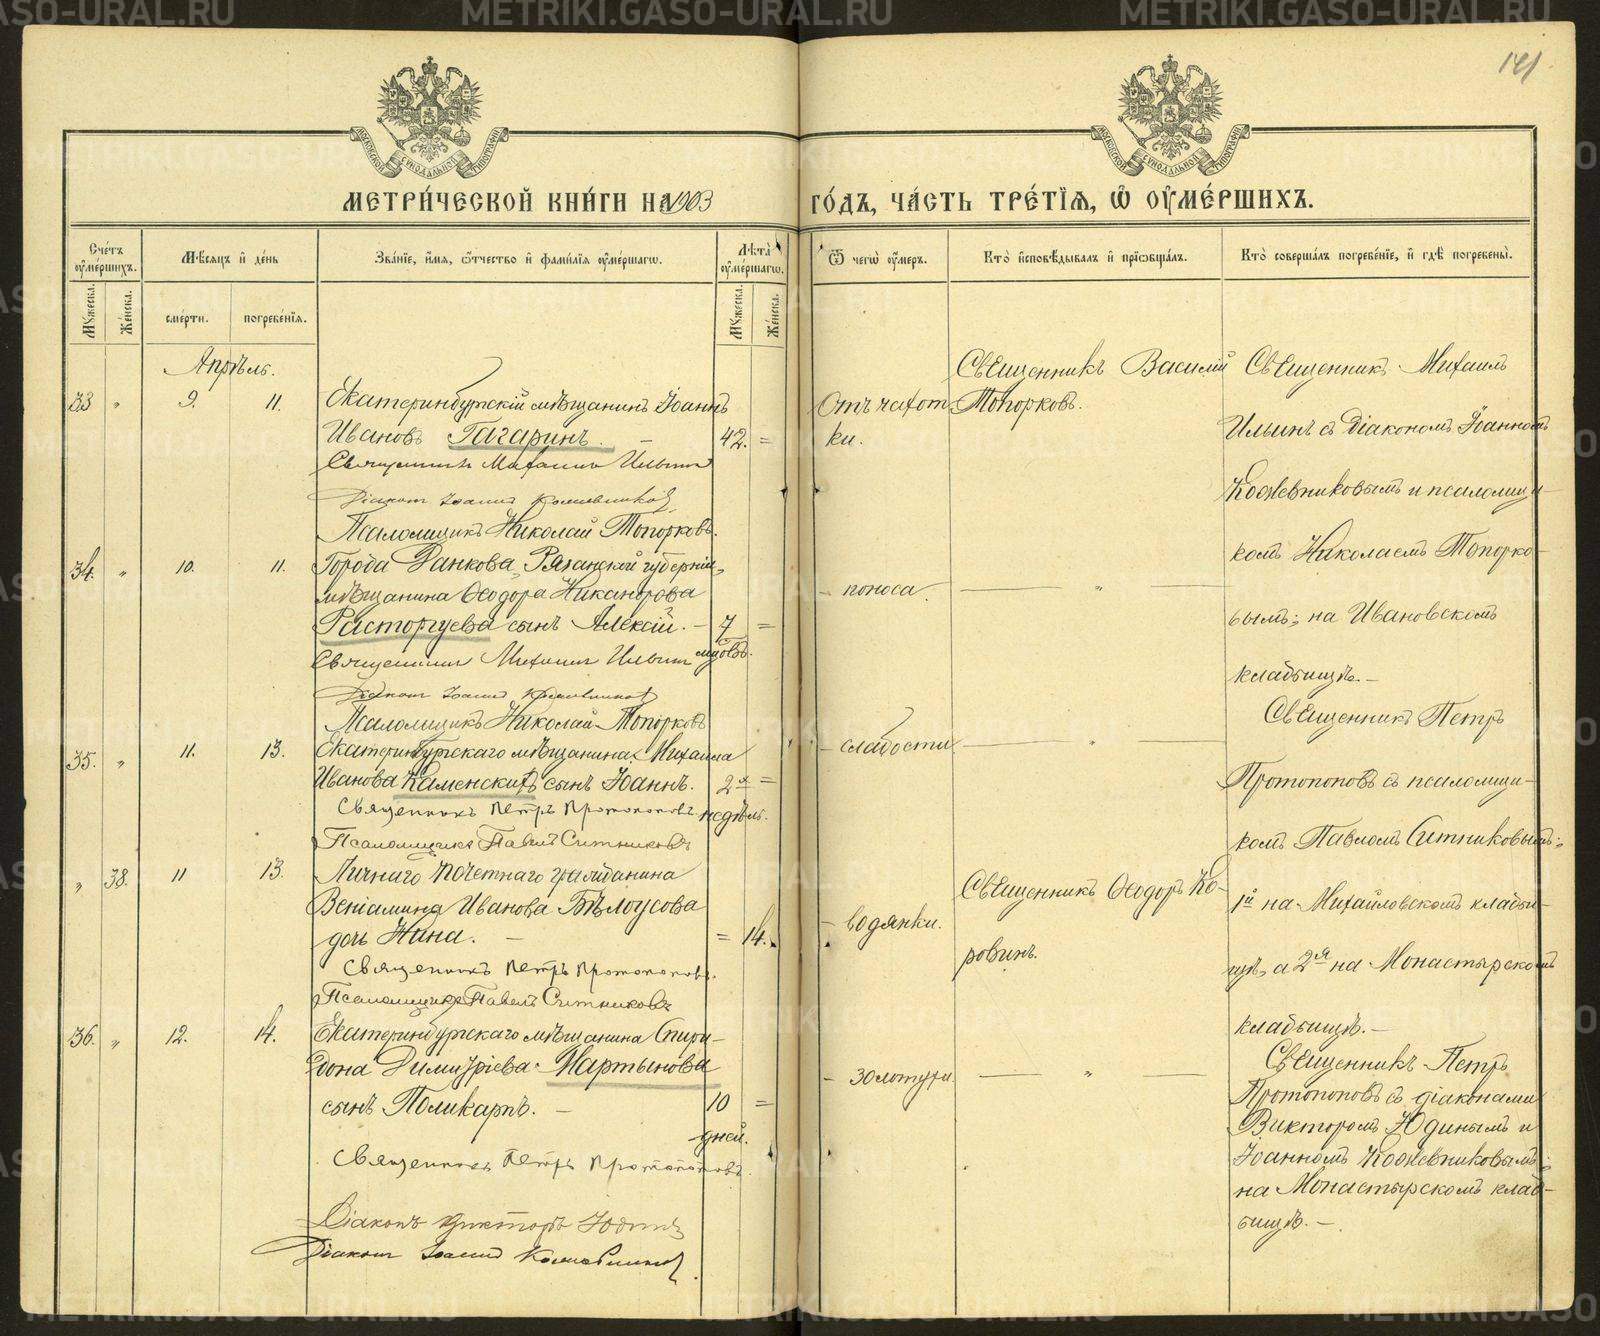 METRIKI.GASO-URAL.RU
141
МОСКОВСКОЙ СУНОДАЛЬНОЙ ТИПОГРАФІИ
МОСКОВСКОЙ СУНОДАЛЬНОЙ ТИПОГРАФІИ
МЕТРИ́ЧЕСКОЙ КНИ́ГИ НА 1903 ГО́ДЪ, ЧА́СТЬ ТРЕ́ТІЯ, Ѡ ОУМЕ́РШИХЪ.
Сче́тъ оуме́ршихъ.
Мꙋжеска.
Же́нска.
Мѣ́сяцъ и де́нь
сме́рти.
погребе́нія.
Зва́ніе, и́мя, ѻ́тчество и фами́лія оуме́ршагѡ.
Лѣта̀ оуме́ршагѡ.
Мꙋжеска.
Же́нска.
Ѿ чегѡ̀ оу́меръ.
Кто̀ исповѣ́дывалъ и пріѡбща́лъ.
Кто̀ соверша́лъ погребе́ніе, и гдѣ̀ погребены̀.
Апрѣль.
33 „ 9. 11.
Екатеринбургскій мѣщанинъ Іоаннъ
Ивановъ Гагаринъ. — 42. =
Священникъ Михаилъ Ильинъ
Діаконъ Іоаннъ Кожевниковъ
Псаломщикъ Николай Топорковъ.
Отъ чахот-
ки.
Священникъ Василій
Топорковъ.
Священникъ Михаилъ
Ильинъ съ діакономъ Іоанномъ
Кожевниковымъ и псаломщи-
комъ Николаемъ Топорко-
вымъ; на Ивановскомъ
кладбищѣ.—
34. „ 10. 11.
Города Данкова, Рязанской губерніи,
мѣщанина Ѳеодора Никанорова
Расторгуева сынъ Алексій. — 7 =
мцовъ.
Священникъ Михаилъ Ильинъ
Діаконъ Іоаннъ Кожевниковъ
Псаломщикъ Николай Топорковъ
— поноса. — „ —
35. „ 11. 13.
Екатеринбургскаго мѣщанина Михаила
Иванова Каменскихъ сынъ Іоаннъ. 2х =
недѣль.
Священникъ Петръ Протопоповъ.
Псаломщикъ Павелъ Ситниковъ
— слабости — „ —
Священникъ Петръ
Протопоповъ съ псаломщи-
комъ Павломъ Ситниковымъ;
1й на Михайловскомъ кладби-
щѣ, а 2я на Монастырскомъ
кладбищѣ.—
„ 38. 11 13.
Личнаго почетнаго гражданина
Веніамина Иванова Бѣлоусова
дочь Нина. — = 14.
Священникъ Петръ Протопоповъ.
Псаломщикъ Павелъ Ситниковъ
— водянки.
Священникъ Ѳеодоръ Ко-
ровинъ.
36. „ 12. 14.
Екатеринбургскаго мѣщанина Спири-
дона Димитріева Мартынова
сынъ Поликарпъ. — 10 =
дней.
Священникъ Петръ Протопоповъ
Діаконъ Викторъ Юдинъ
Діаконъ Іоаннъ Кожевниковъ.
— золотухи. — „ —
Священникъ Петръ
Протопоповъ съ діаконами
Викторомъ Юдинымъ и
Іоанномъ Кожевниковымъ;
на Монастырскомъ клад-
бищѣ.—